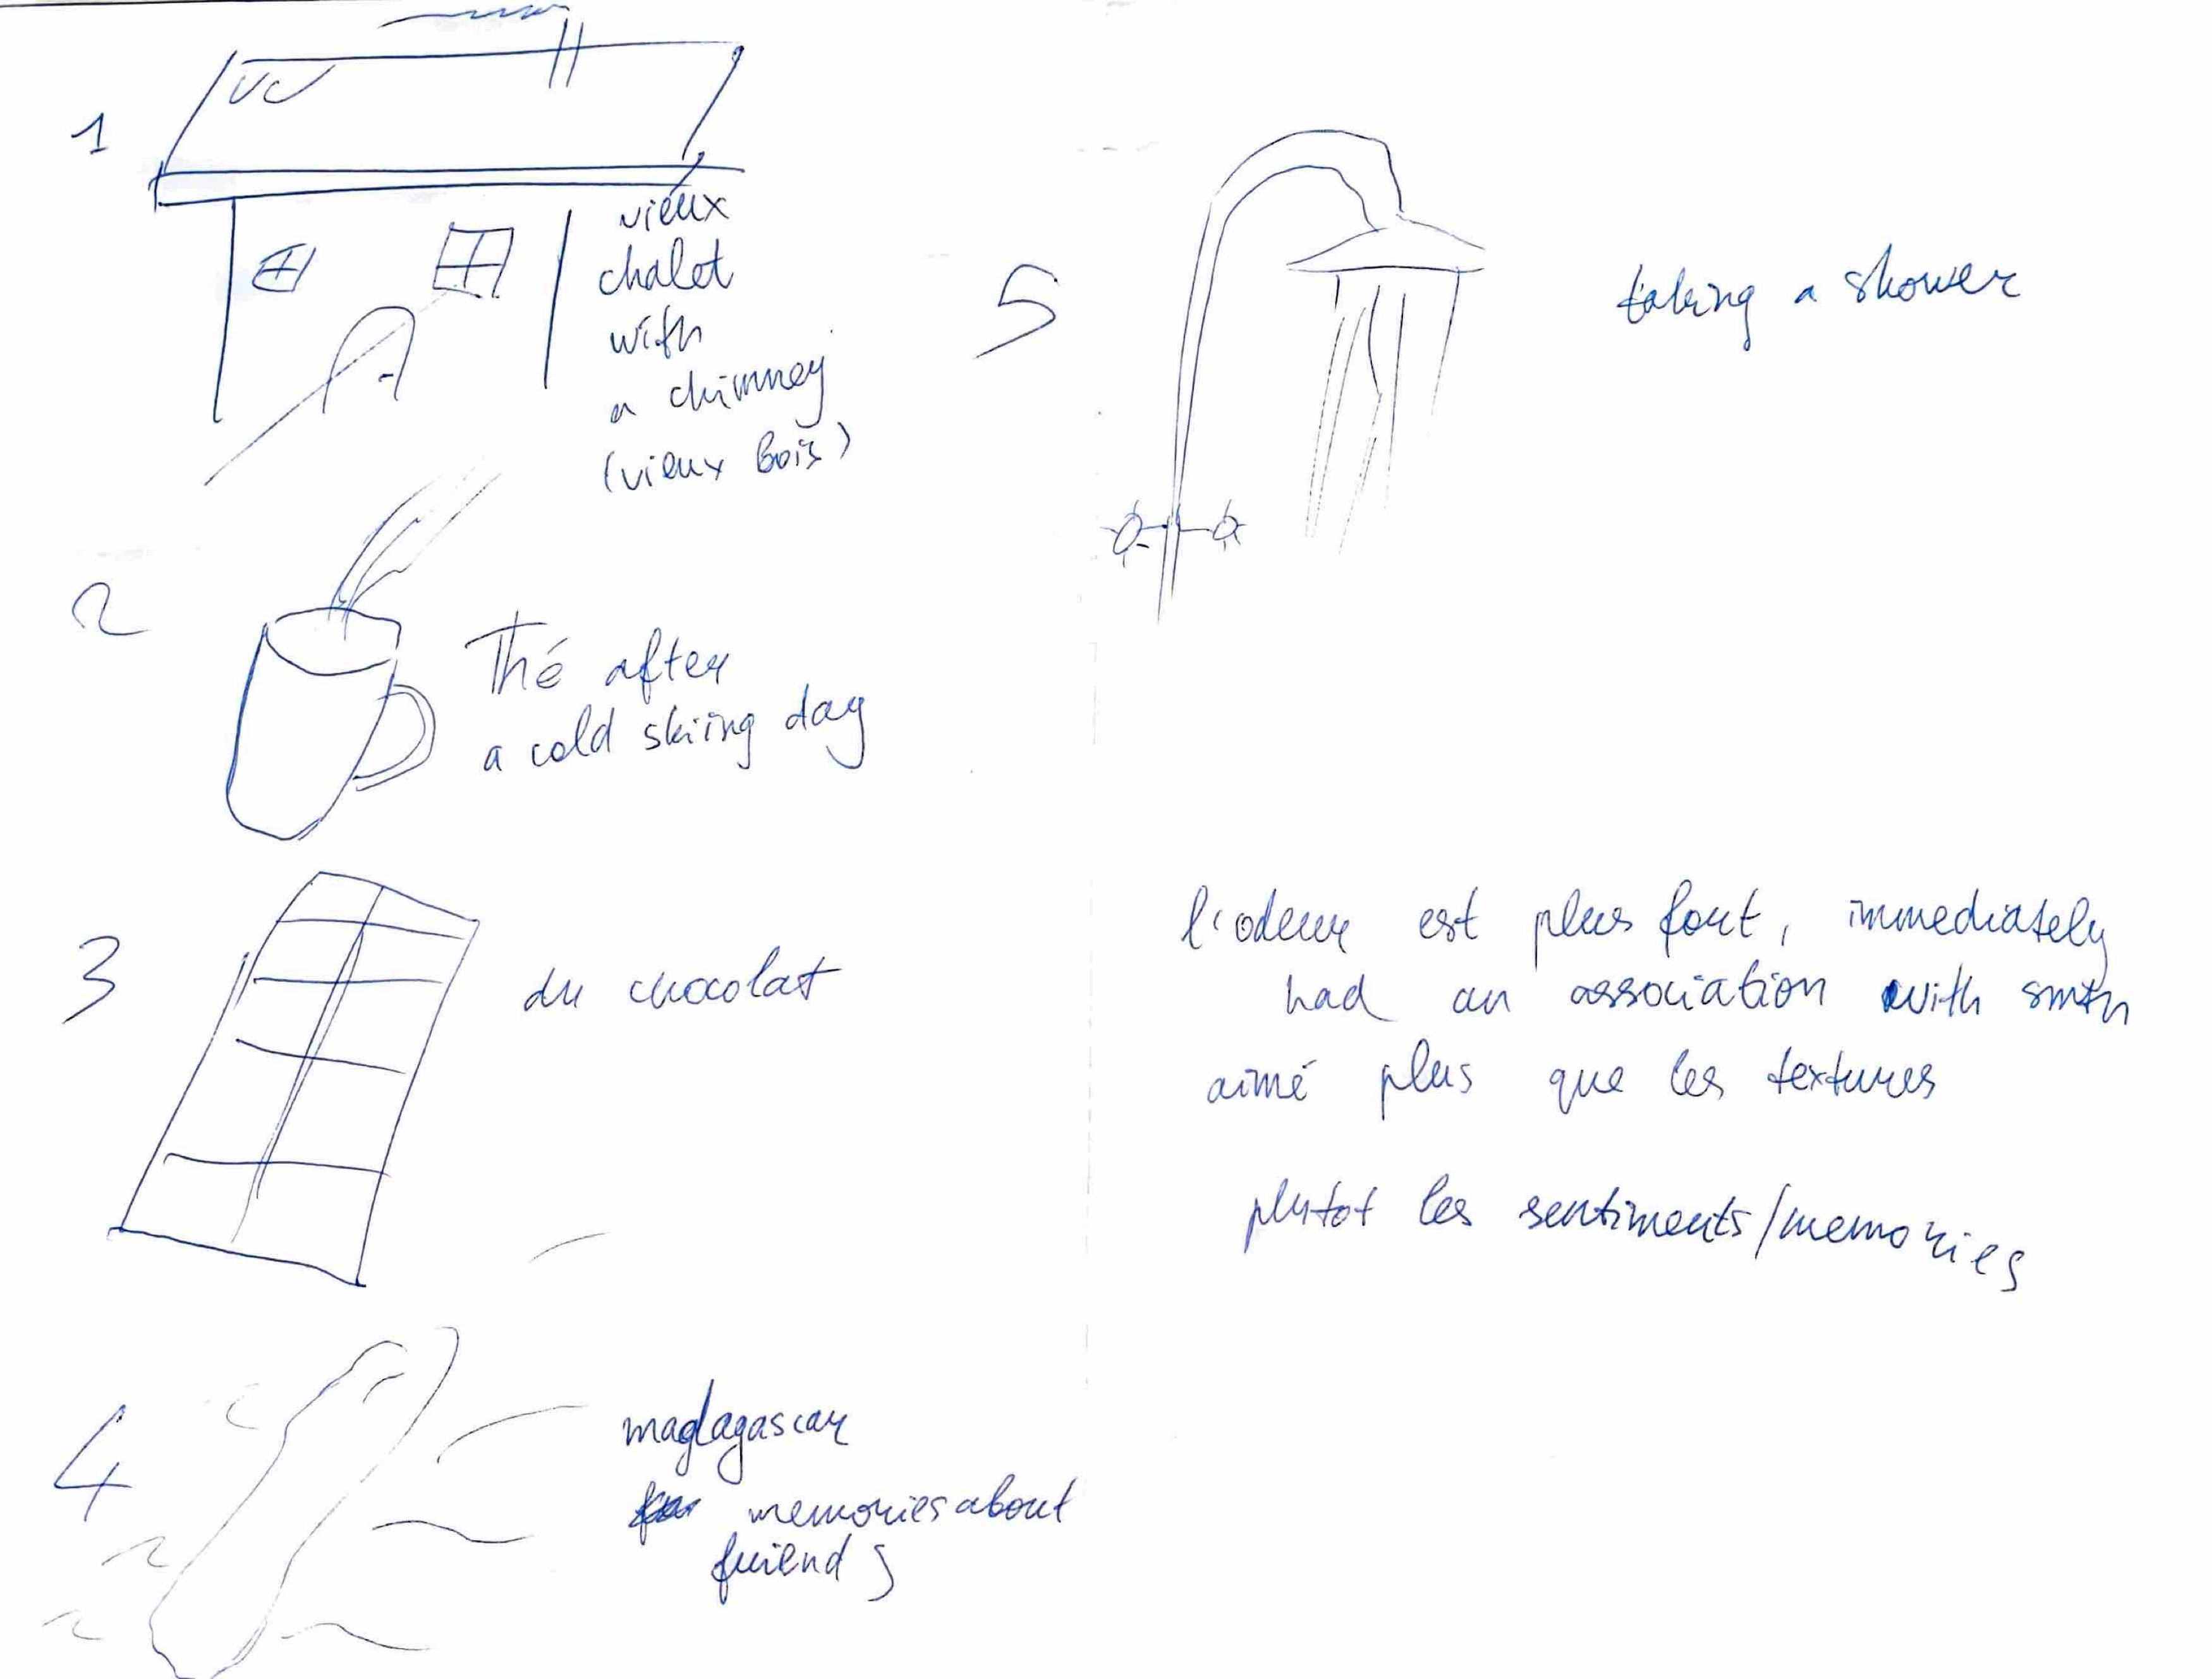 1
vieux
chalet
with
a chimney
(vieux bois)
2
Thé after
a cold skiing day
3
du chocolat
4
madagascar
memories about
friends
5
taking a shower
l'odeur est plus fort, immediately
had an association with smth
aimé plus que les textures
plutot les sentiments/memories